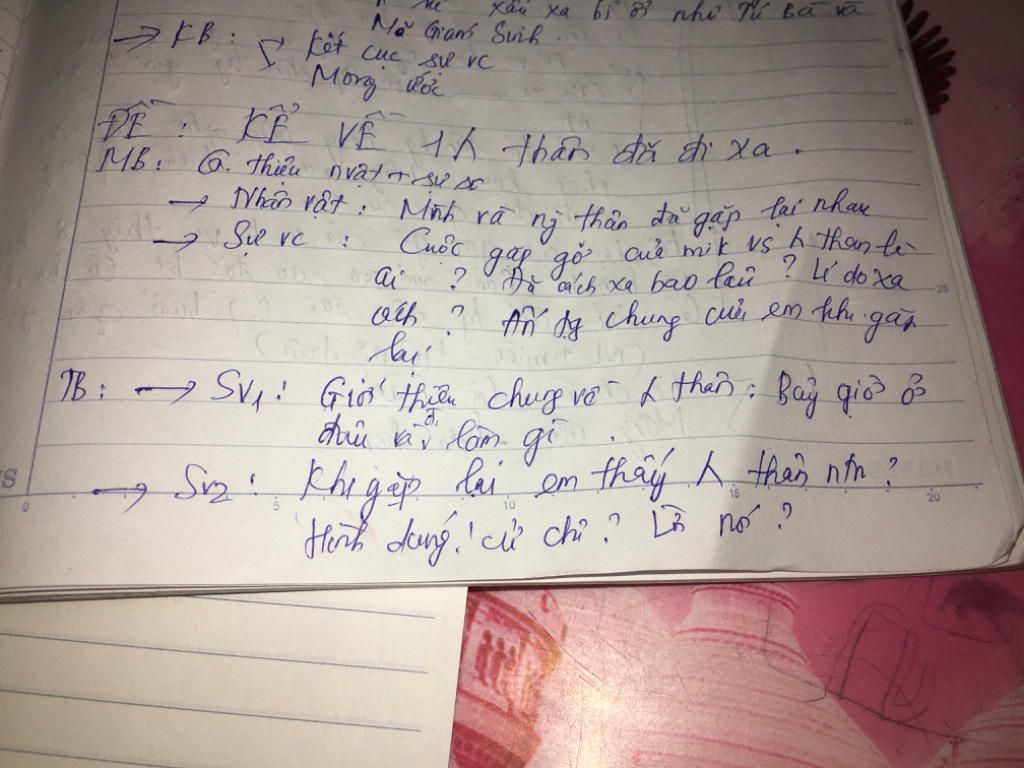 xấu xa bỉ ổi như Tú Bà và
→ KB : Kết cục sự vc Mã Giám Sinh.
Mong ước
ĐỀ : KỂ VỀ 1 thân đã đi xa .
MB: G. thiệu nvật + sự vc
→ Nhân vật : Mình và ng thân đã gặp lại nhau
→ Sự vc : Cuộc gặp gỡ của mik vs thân là
ai ? Đã cách xa bao lâu ? Lí do xa
cách ? Ấn tg chung của em khi gặp
lại
TB : → SV1 : Giới thiệu chung về thân : Bây giờ ở
đâu và đi làm gì .
→ SV2 : Khi gặp lại em thấy thân ntn ?
Hình dáng ! cử chỉ ? nói ?
0 5 10 15 20
20
25